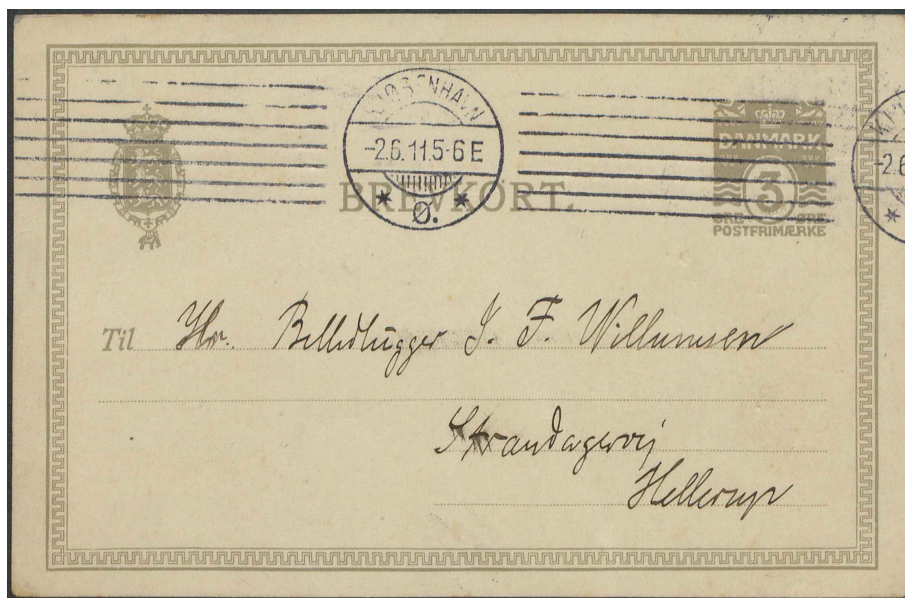 KJØBENHAVN
-2.6.11.5-6 E
* Ø. *
DANMARK
3
ØRE ØRE
POSTFRIMÆRKE
-2.6
BREVKORT.
Til Hr. Billedhugger J. F. Willumsen
Strandagervej
Hellerup